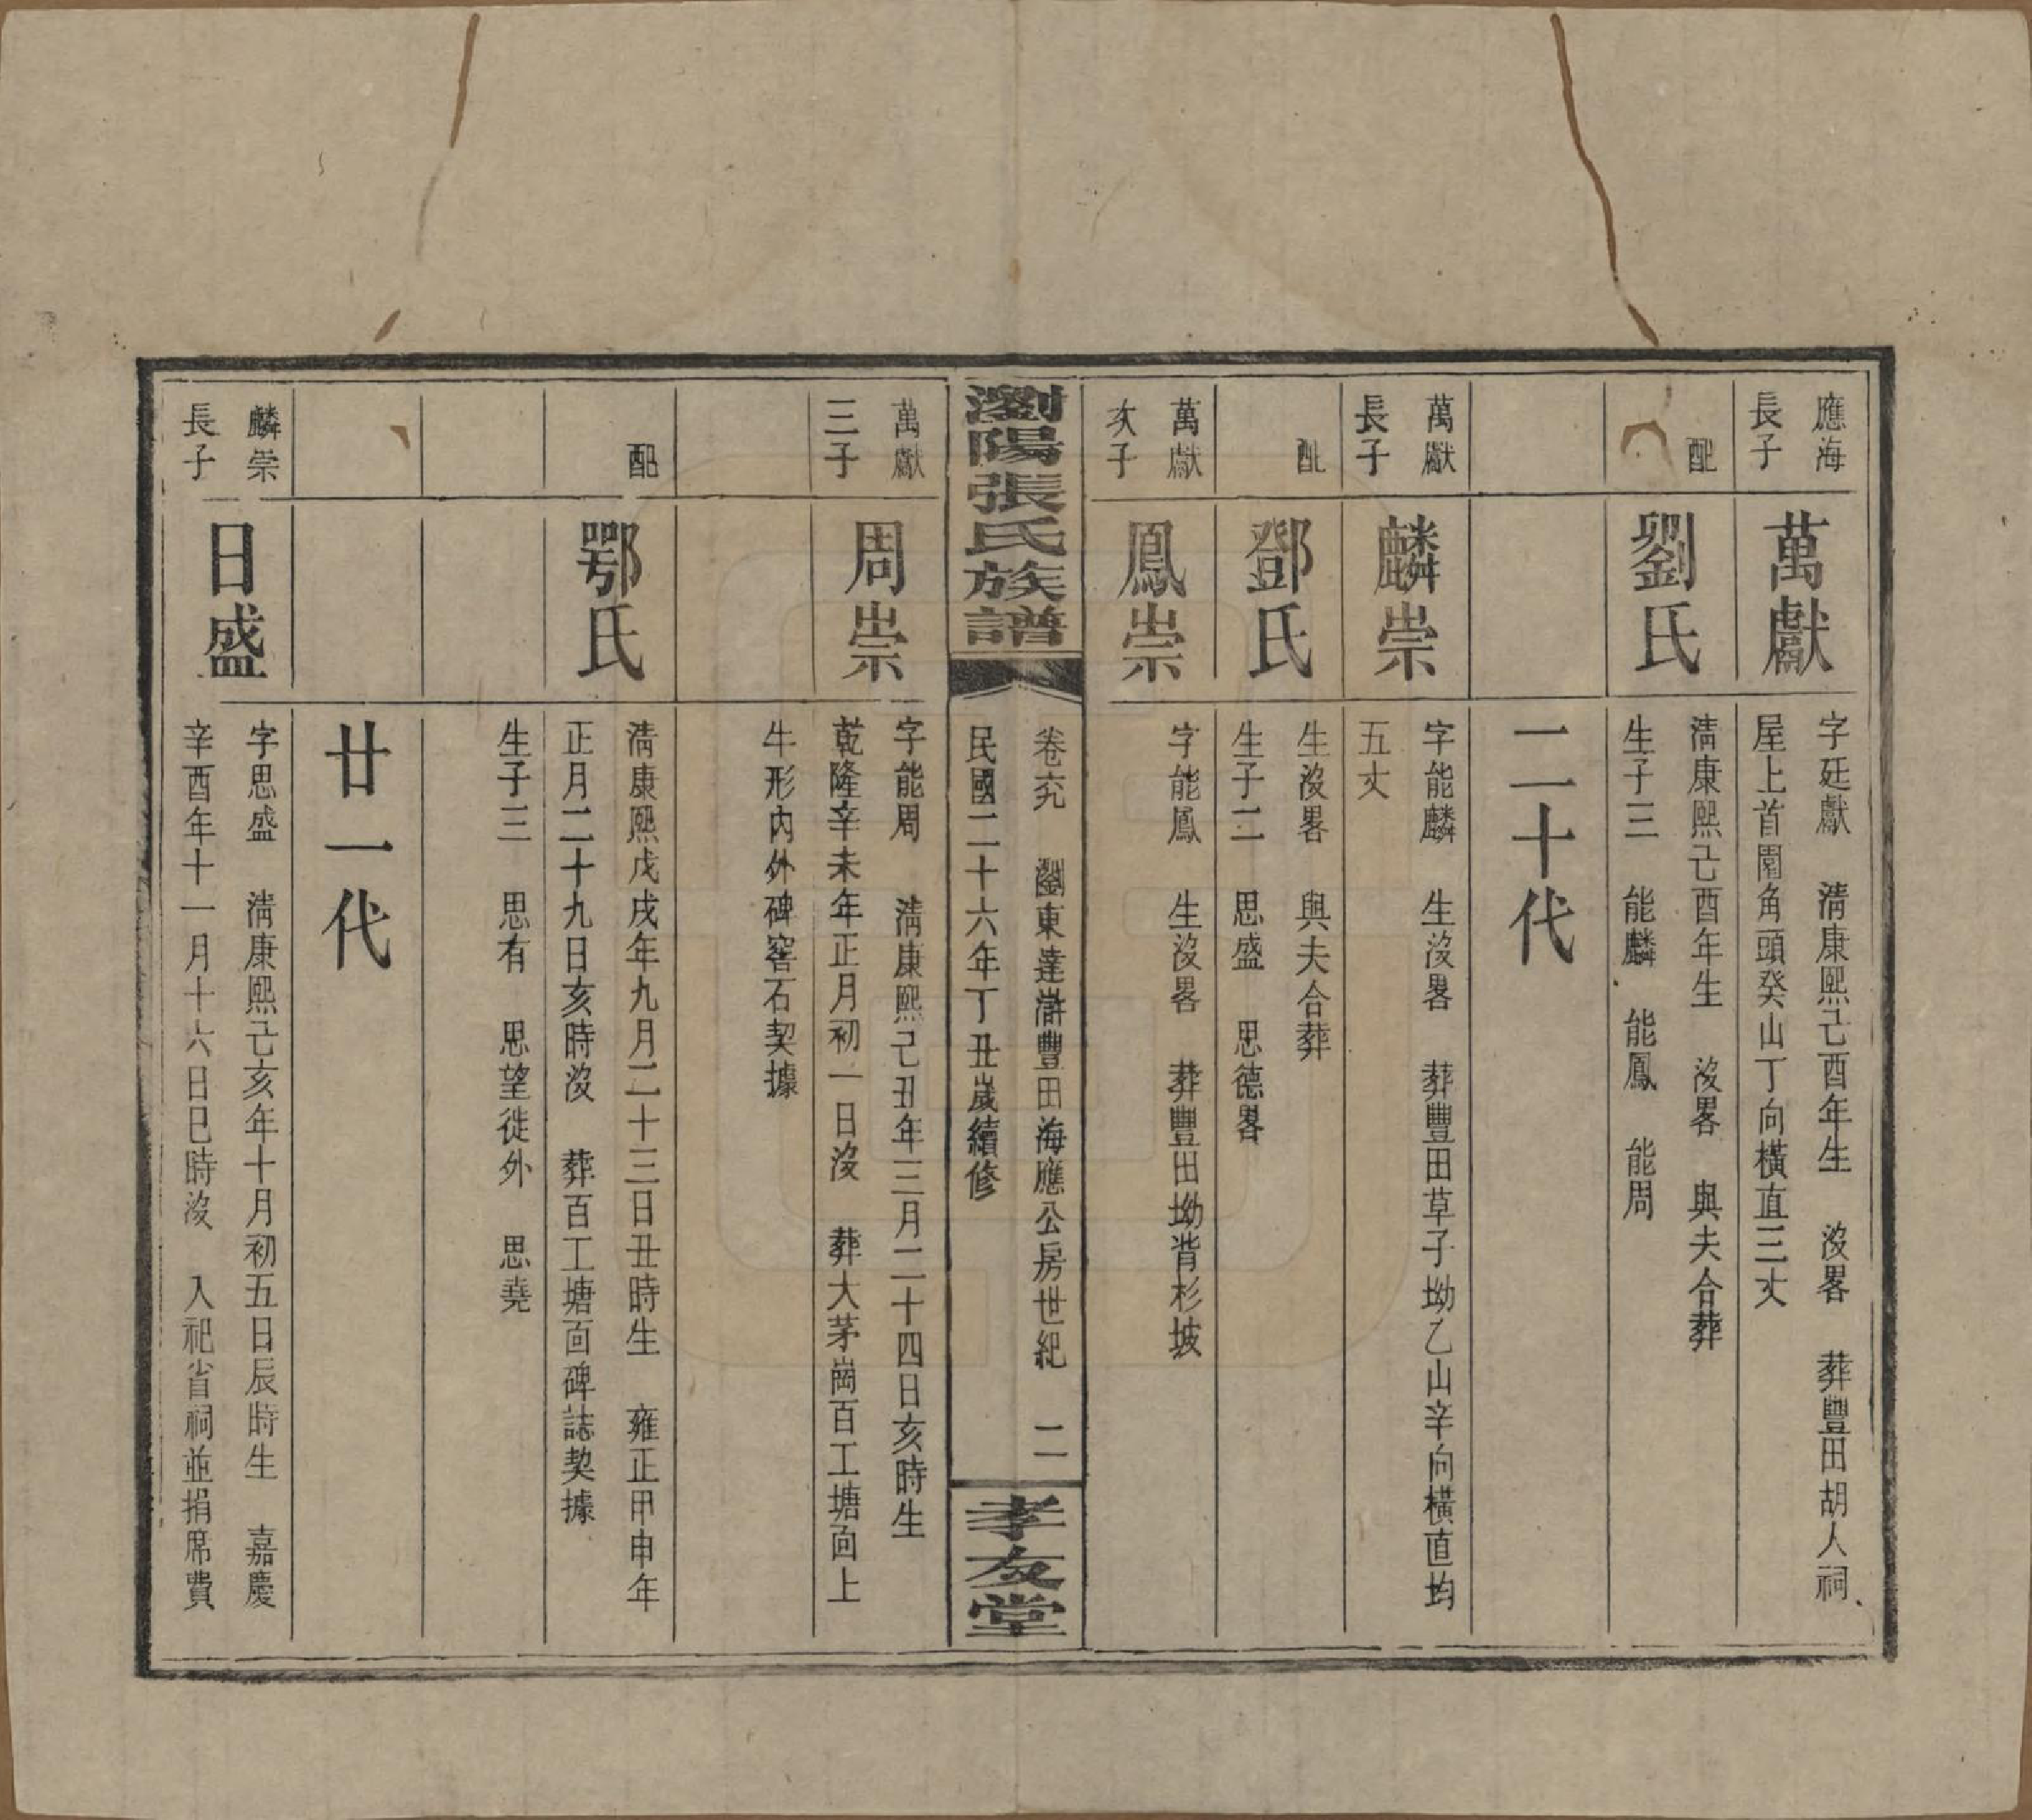 應海
長子
萬獻
字廷獻　清康熙己酉年生　沒畧　葬豐田胡人祠
屋上首園角頭癸山丁向橫直三丈
配
劉氏
清康熙己酉年生　沒畧　與夫合葬
生子三　能麟　能鳳　能周
二十代
萬獻
長子
麟崇
字能麟　生沒畧　葬豐田草子坳乙山辛向橫直均
五丈
配
鄧氏
生沒畧　與夫合葬
生子二　思盛　思德畧
萬獻
次子
鳳崇
字能鳳　生沒畧　葬豐田坳背杉坡
瀏陽張氏族譜
卷六　瀏東達滸豐田海應公房世紀　二
民國二十六年丁丑歲續修
孝友堂
萬獻
三子
周崇
字能周　清康熙己丑年三月二十四日亥時生
乾隆辛未年正月初一日沒　葬大茅崗百工塘面上
牛形內外碑窖石契據
配
鄂氏
清康熙戊戌年九月二十三日丑時生　雍正甲申年
正月二十九日亥時沒　葬百工塘面碑誌契據
生子三　思有　思望徙外　思堯
廿一代
麟崇
長子
日盛
字思盛　清康熙己亥年十月初五日辰時生　嘉慶
辛酉年十一月十六日巳時沒　入祀省祠並捐席費